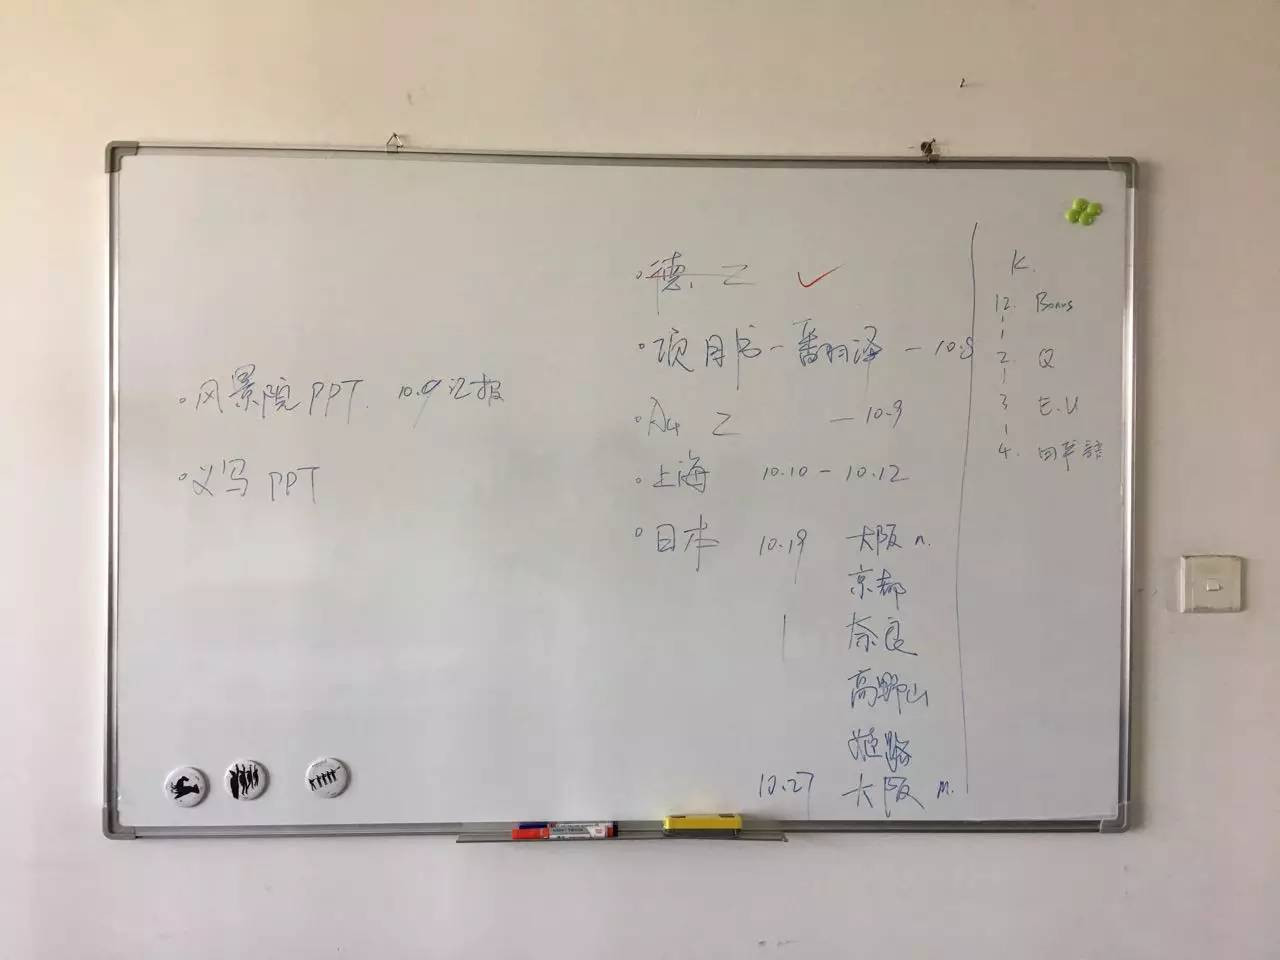 ·风景院PPT. 10.9汇报
·义写PPT
·德. 乙 ✓
·项目书-翻译 - 10.8
乙 - 10.9
·上海 10.10 - 10.12
·日本 10.19 大阪 n.
京都
| 奈良
高野山
姬路
10.27 大阪 M.
K.
12. Bonus
2. Q
3 E.U
4.